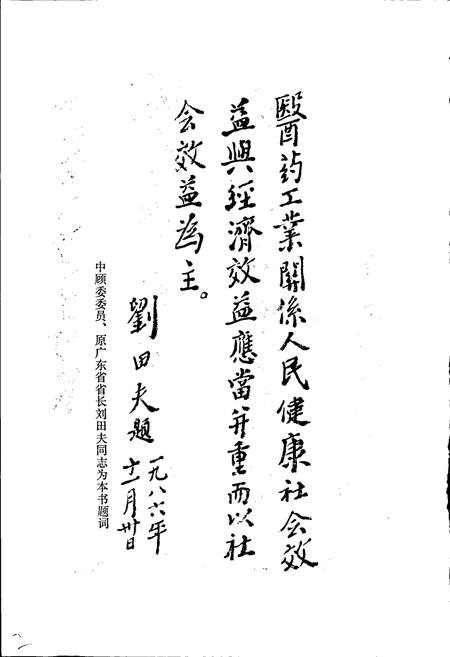 醫药工業關係人民健康社会效
益與經濟效益應當并重而以社
会效益為主。
劉田夫題
一九八六年
十一月卅日
中顾委委员、原广东省省长刘田夫同志为本书题词